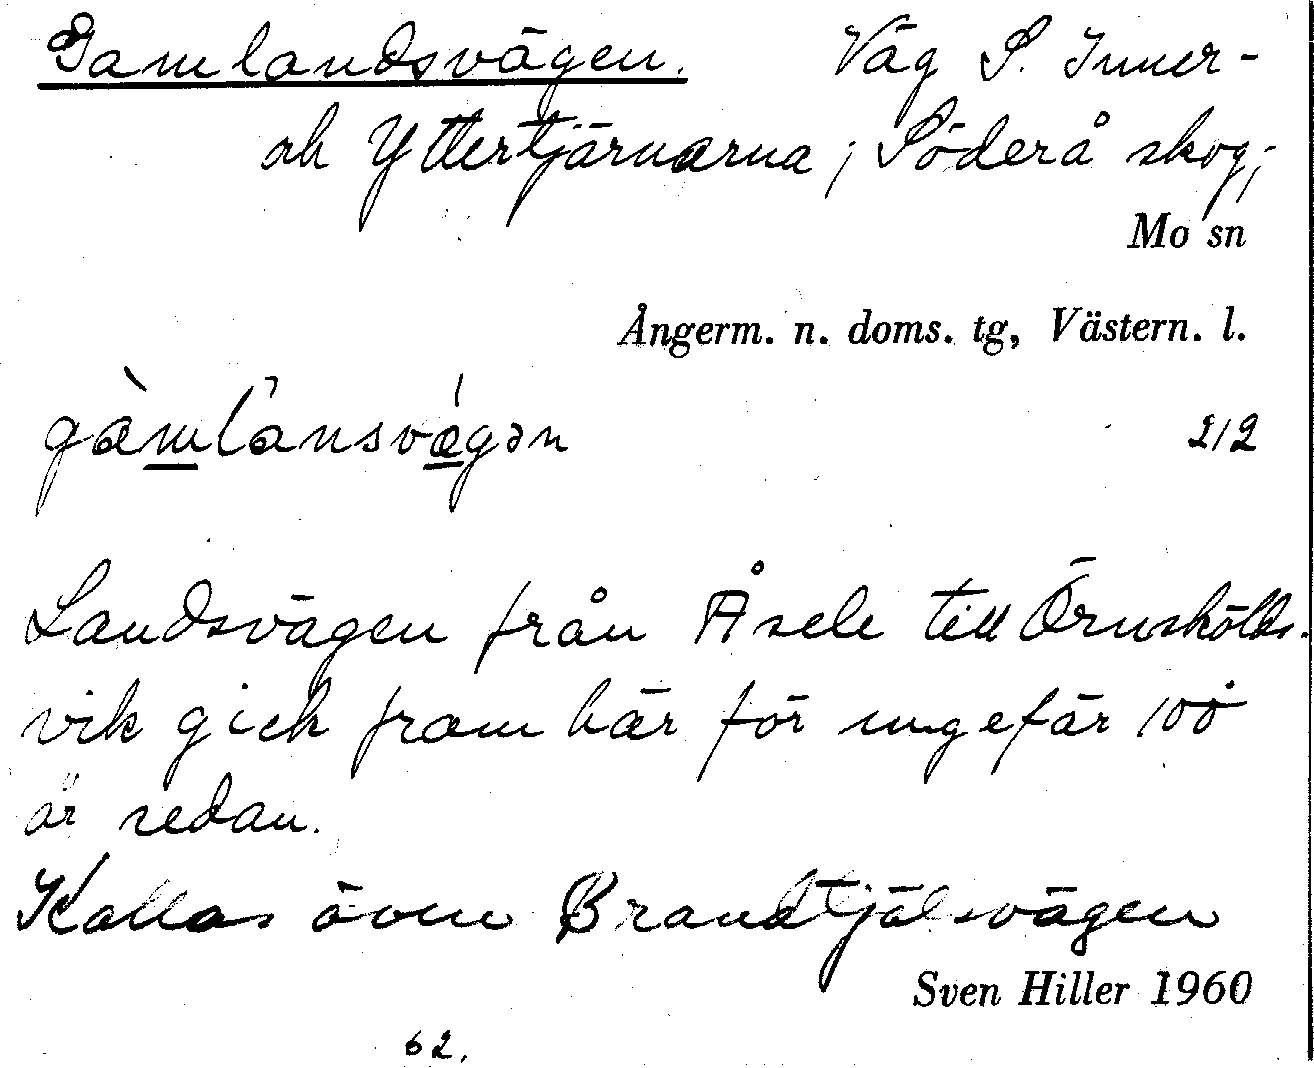 Gamlandsvägen. Väg S. Inner-
och Yttertjärnarna; Söderå skog;
Mo sn
Ångerm. n. doms. tg, Västern. l.
gàm̲lánsvǽ̲gən 2/2
Landsvägen från Åsele till Örnskölds-
vik gick fram här för ungefär 100
år sedan.
Kallas även Brandtjälsvägen
Sven Hiller 1960
62.